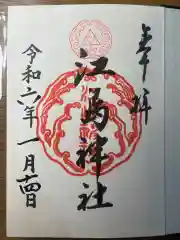 奉拝
江島神社
令和六年一月十四日